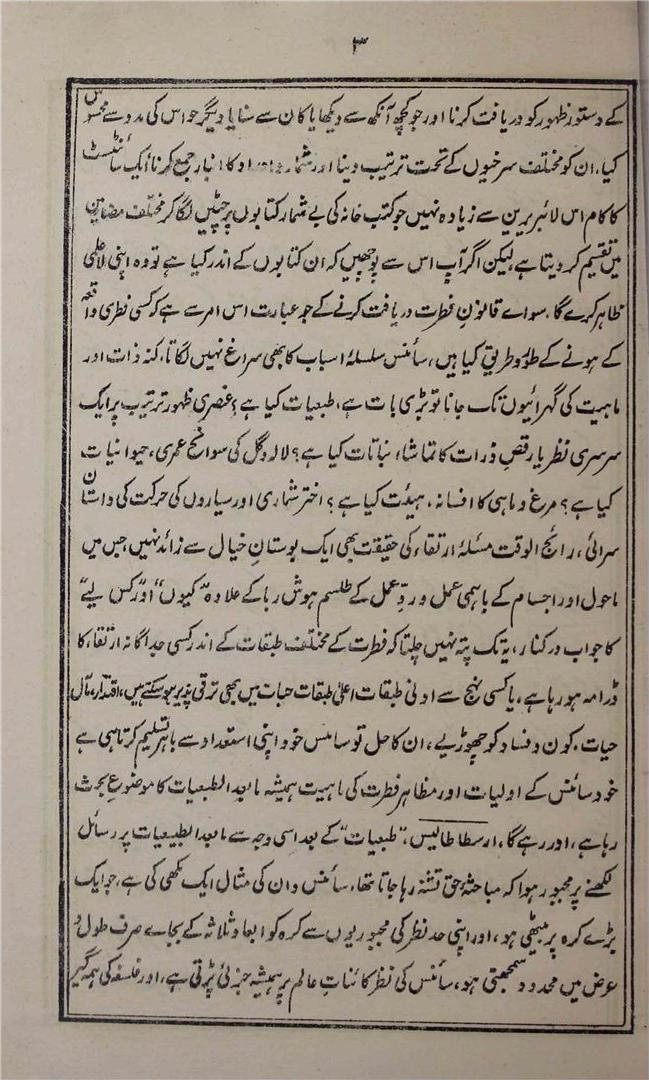 ۳
کے دستور ظہور کو دریافت کرنا اور جو کچھ آنکھ سے دیکھا یا کان سے سنا یا دیگر حواس کی مدد سے محسوس
کیا، ان کو مختلف سرخیوں کے تحت ترتیب دینا اور شمار و اعداد کا انبار جمع کرنا، ایک سائنٹسٹ
کا کام اس لائبریرین سے زیادہ نہیں جو کتب خانہ کی بے شمار کتابوں پر چٹیں لگا کر مختلف مضامین
میں تقسیم کر دیتا ہے لیکن اگر آپ اس سے پوچھیں کہ ان کتابوں کے اندر کیا ہے تو وہ اپنی لاعلمی
ظاہر کرے گا۔ سواے قانونِ فطرت دریافت کرنے کے جو عبارت اس امر سے ہے کہ کسی نظری واقعہ
کے ہونے کے طور و طریق کیا ہیں، سائنس سلسلۂ اسباب کا بھی سراغ نہیں لگاتا، کنہ ذات اور
ماہیت کی گہرائیوں تک جانا تو بڑی بات ہے، طبعیات کیا ہے؟ عنصری ظہور ترتیب پر ایک
سرسری نظر یا رقصِ ذرات کا تماشا، نباتات کیا ہے؟ لالہ و گل کی سوانح عمری، حیوانیات
کیا ہے؟ مرغ و ماہی کا افسانہ، ہیئت کیا ہے؟ اختر شماری اور سیاروں کی حرکت کی داستان
سرائی، رائج الوقت مسئلۂ ارتقاء کی حقیقت بھی ایک بوستانِ خیال سے زائد نہیں جس میں
ماحول اور اجسام کے باہمی عمل و ردِّ عمل کے طلسم ہوش ربا کے علاوہ "کیوں" اور "کس لیے"
کا جواب درکنار، یہ تک پتہ نہیں چلتا کہ فطرت کے مختلف طبقات کے اندر کسی جداگانہ ارتقاء کا
ڈرامہ ہو رہا ہے، یا کسی نہج سے ادنیٰ طبقات اعلیٰ طبقات حیات میں بھی ترقی پذیر ہو سکتے ہیں، اقدار، مآل
حیات، کون و فساد کو چھوڑیے، ان کا حل تو سائنس خود اپنی استعداد سے باہر تسلیم کرتا ہی ہے
خود سائنس کے اولیات اور مظاہر فطرت کی ماہیت ہمیشہ مابعد الطبعیات کا موضوعِ بحث
رہا ہے، اور رہے گا، ارسطاطالیس، "طبعیات" کے بعد اسی وجہ سے مابعد الطبیعیات پر رسائل
لکھنے پر مجبور ہوا کہ مباحثۂ حق تشنہ رہا جاتا تھا، سائنس دان کی مثال ایک مکھی کی ہے، جو ایک
بڑے کرہ پر بیٹھی ہو، اور اپنی حد نظر کی مجبوریوں سے کرہ کو ابعاد ثلاثہ کے بجاے صرف طول و
عرض میں محدود سمجھتی ہو، سائنس کی نظر کائنات عالم پر ہمیشہ جزئی پڑتی ہے، اور فلسفہ کی ہمہ گیر